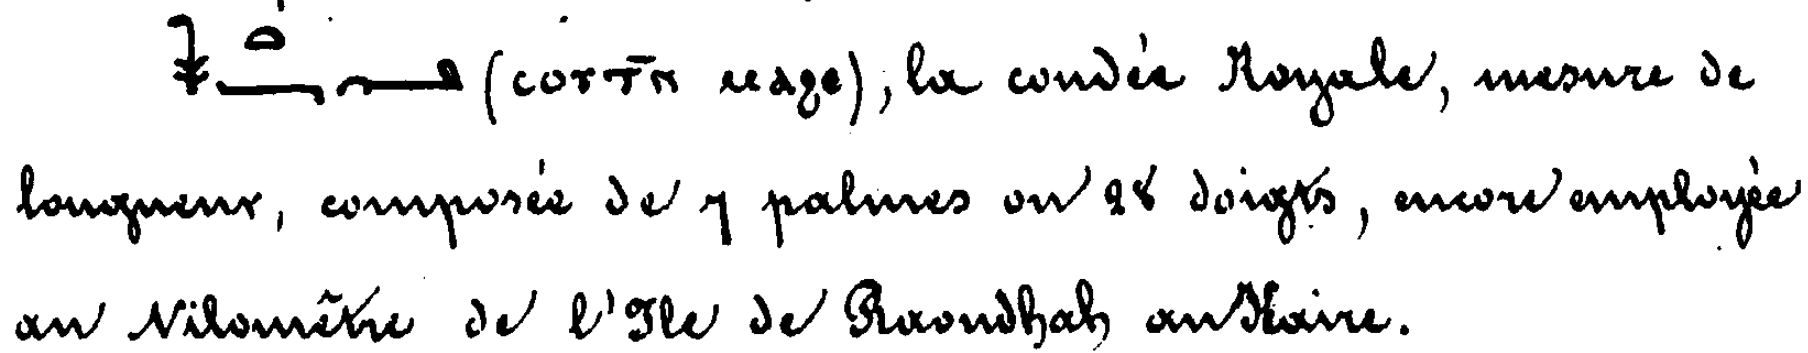 (ⲥⲟⲩⲧⲛ̄ ⲙⲁϩⲉ), la coudée Royale, mesure de
longueur, composée de 7 palmes ou 28 doigts, encore employée
au Nilomêtre de l'Ile de Raoudhah au Kaire.